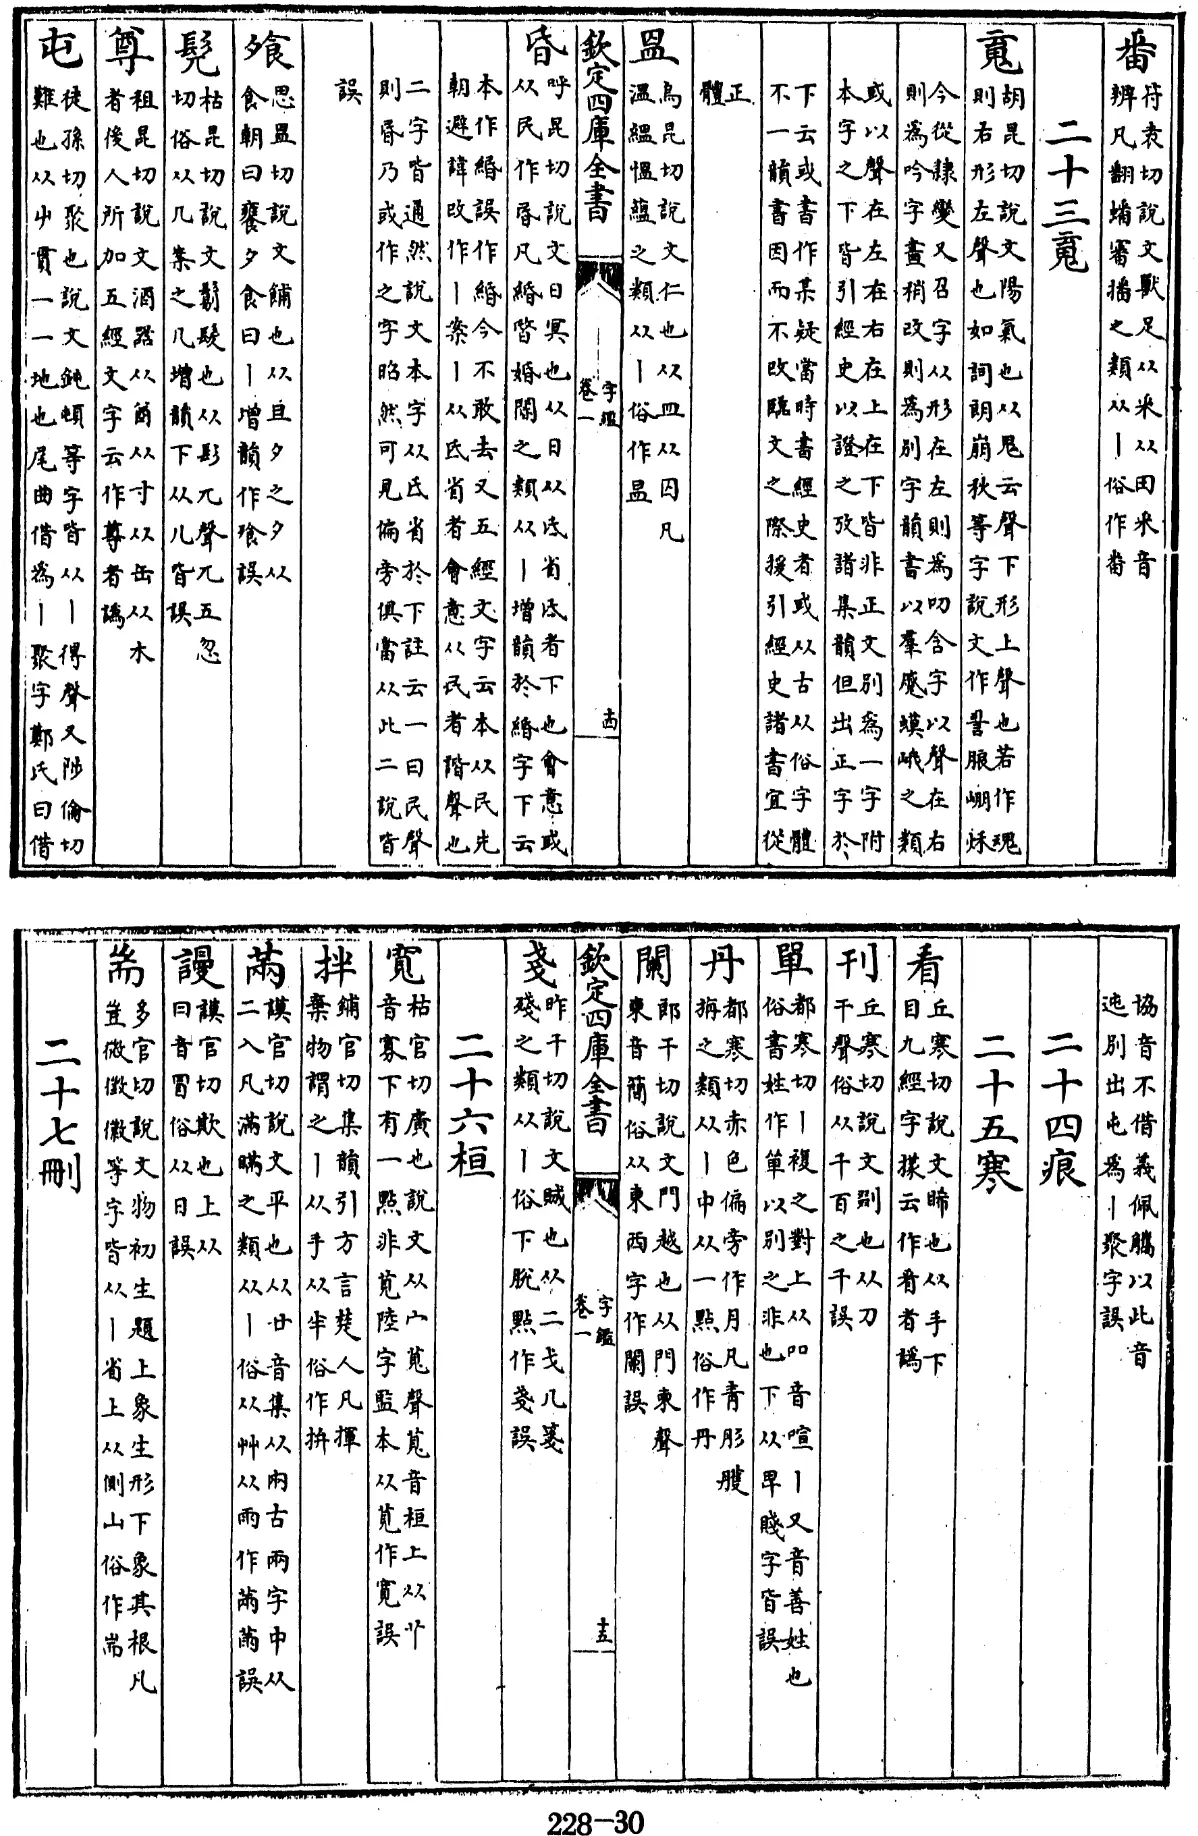 番 符袁切說文獸足从釆从田釆音
辨凡翻蟠審播之類从丨俗作畨
二十三䰟
䰟 胡昆切說文陽氣也从鬼云聲下形上聲也若作魂
則右形左聲也如詞朗崩秋等字說文作䛐朖㟟秌
今從隸變又召字从形在左則為叨含字以聲在右
則為吟字畫稍改則為別字韻書以羣䕫蟆峨之類
或以聲在左在右在上在下皆非正文別為一字附
本字之下皆引經史以證之攷諸集韻但出正字於
下云或書作某疑當時書經史者或从古从俗字體
不一韻書因而不改臨文之際援引經史諸書宜從
正
體
昷 烏昆切說文仁也从皿从囚凡
溫緼愠蘊之類从丨俗作昷
欽定四庫全書
字鑑
卷一
十四
昏 呼昆切說文日冥也从日从氐省氐者下也會意或
从民作昬凡緡暋婚閽之類从丨增韻於緡字下云
本作緡誤作緍今不敢去又五經文字云本从民先
朝避諱改作丨案丨从氐省者會意从民者諧聲也
二字皆通然說文本字从氐省於下註云一曰民聲
則昬乃或作之字昭然可見偏旁俱當从此二說皆
誤
飱 思昷切說文餔也从且夕之夕从
食朝曰饔夕食曰丨增韻作飧誤
髠 枯昆切說文鬀髮也从髟兀聲兀五忽
切俗从几案之几增韻下从儿皆誤
尊 祖昆切說文酒器从酋从寸从缶从木
者後人所加五經文字云作尊者譌
屯 徒孫切聚也說文鈍頓等字皆从丨得聲又陟倫切
難也从屮貫一一地也尾曲借為丨聚字鄭氏曰借
協音不借義佩觿以此音
迍別出屯為丨聚字誤
二十四痕
二十五寒
看 丘寒切說文睎也从手下
目九經字㨾云作㸔者譌
刊 丘寒切說文剟也从刀
干聲俗从千百之千誤
單 都寒切丨複之對上从吅音喧丨又音善姓也
俗書姓作單以別之非也下从早賤字皆誤
丹 都寒切赤色偏旁作月凡青彤䑽
栴之類从丨中从一點俗作丹
闌 郎干切說文門越也从門柬聲
柬音簡俗从東西字作闌誤
欽定四庫全書
字鑑
卷一
十五
戔 昨干切說文賊也从二戈凡箋
殘之類从丨俗下脫點作戔誤
二十六桓
寛 枯官切廣也說文从宀萈聲萈音桓上从𦫳
音寡下有一點非萈陸字監本从萈作寬誤
拌 鋪官切集韻引方言楚人凡揮
棄物謂之丨从手从半俗作拚
㒼 謨官切說文平也从廿音集从兩古兩字中从
二入凡滿瞞之類从丨俗从艸从雨作㒼㒼誤
謾 謨官切欺也上从
曰音冒俗从日誤
耑 多官切說文物初生題上象生形下象其根凡
豈微徽黴等字皆从丨省上从側山俗作耑
二十七刪
228-30